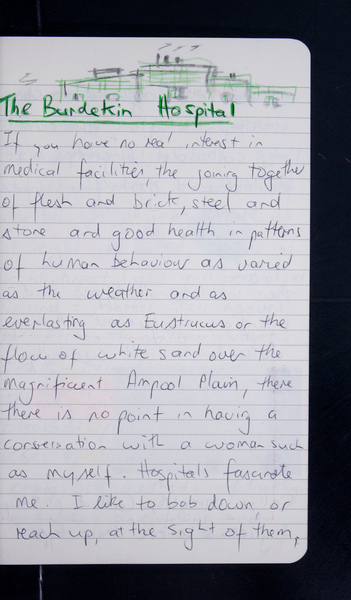 The Burdetkin Hospital
If you have no real interest in
medical facilities, the joining together
of flesh and brick, steel and
stone and good health in patterns
of human behaviour as varied
as the weather and as
everlasting as Eustrucus or the
flow of white sand over the
magnificent Ampool Plain, there
there is no point in having a
conversation with a woman such
as myself. Hospitals fascinate
me. I like to bob down, or
reach up, at the sight of them,